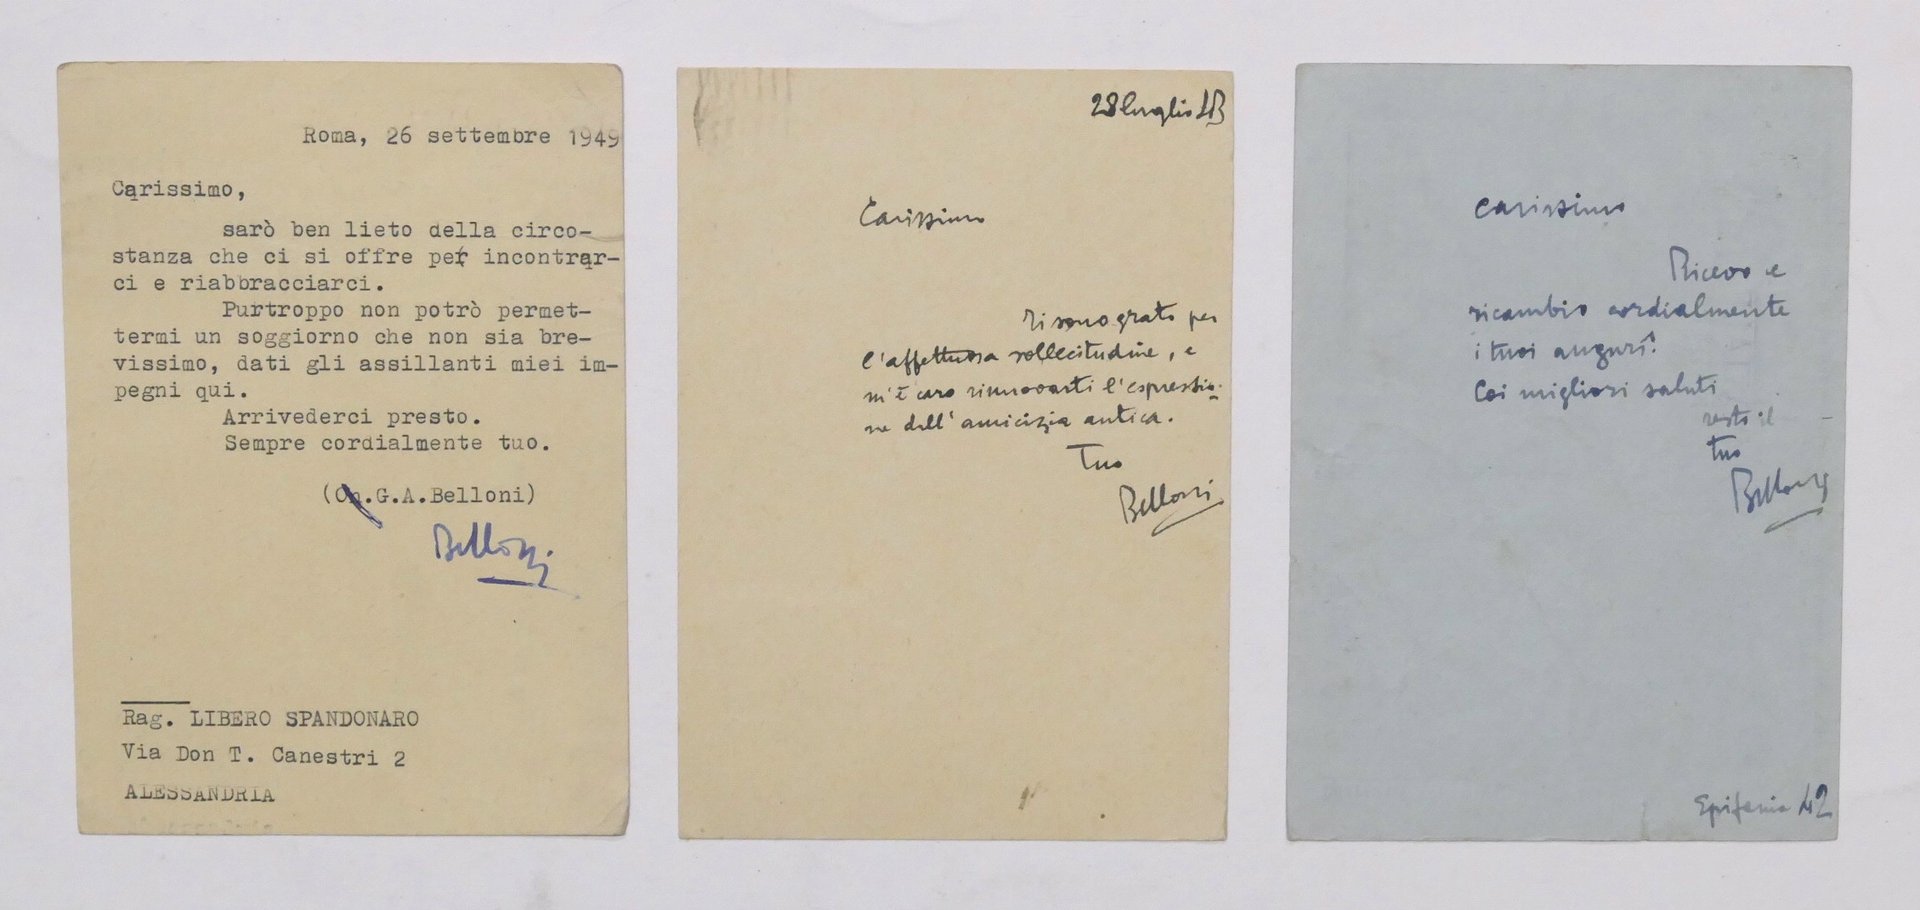 Roma, 26 settembre 1949
Carissimo,
sarò ben lieto della circo-
stanza che ci si offre per incontrar-
ci e riabbracciarci.
Purtroppo non potrò permet-
termi un soggiorno che non sia bre-
vissimo, dati gli assillanti miei im-
pegni qui.
Arrivederci presto.
Sempre cordialmente tuo.
(On.G.A.Belloni)
Belloni
Rag. LIBERO SPANDONARO
Via Don T. Canestri 2
ALESSANDRIA
28 luglio 43
Carissimo
Ti sono grato per
l'affettuosa sollecitudine, e
m'è caro rinnovarti l'espressio-
ne dell'amicizia antica.
Tuo
Belloni
Carissimo
Ricevo e
ricambio cordialmente
i tuoi auguri!
Coi migliori saluti
resto il
tuo
Belloni
Epifania 42